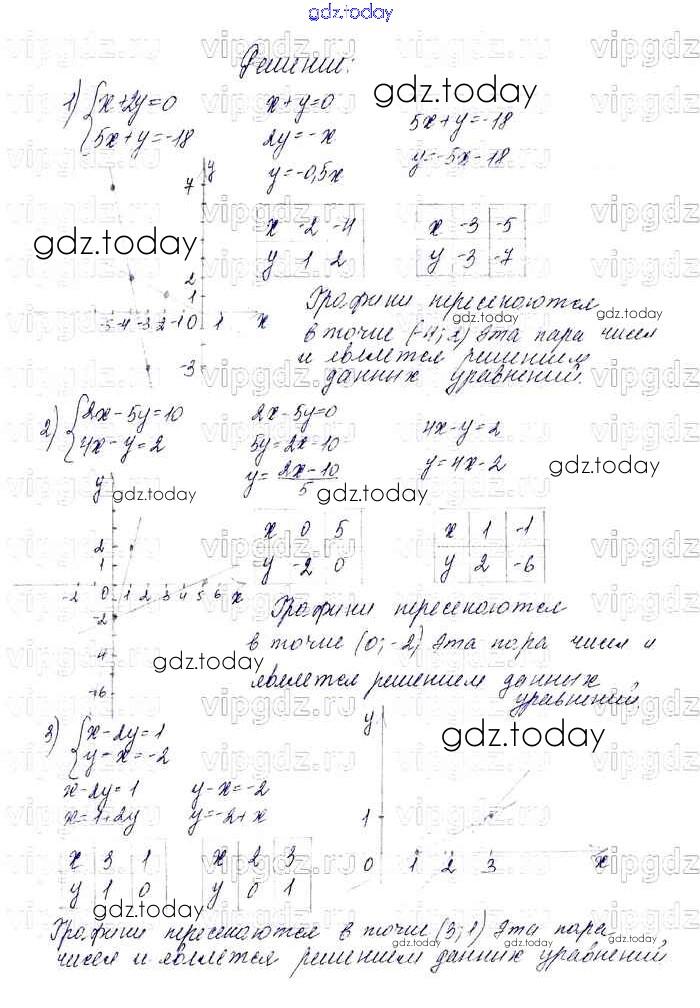 gdz.today
Решение:
1) {x+2y=0
5x+y=-18
x+y=0
2y=-x
y=-0,5x
gdz.today
5x+y=-18
y=-5x-18
y
7
2
1
-5 -4 -3 -2 -1 0 1 x
-3
gdz.today
x -2 -4
y 1 2
x -3 -5
y -3 -7
Графики пересекаются
в точке (-4; 2) Эта пара чисел
и является решением
данных уравнений.
gdz.today
gdz.today
2) {2x-5y=10
4x-y=2
2x-5y=0
5y=2x-10
y=2x-10
5
4x-y=2
y=4x-2
gdz.today
gdz.today
gdz.today
y
2
1
-2 0 1 2 3 4 5 6 x
-2
-4
-6
x 0 5
y -2 0
x 1 -1
y 2 -6
Графики пересекаются
в точке (0; -2) Эта пара чисел и
является решением данных
уравнений
gdz.today
3) {x-2y=1
y-x=-2
x-2y=1
x=1+2y
y-x=-2
y=-2+x
gdz.today
y
1
0 1 2 3 x
x 3 1
y 1 0
x 2 3
y 0 1
gdz.today
Графики пересекаются в точке (3; 1) Эта пара
чисел и является решением данных уравнений
gdz.today
gdz.today
gdz.today
vipgdz.ru